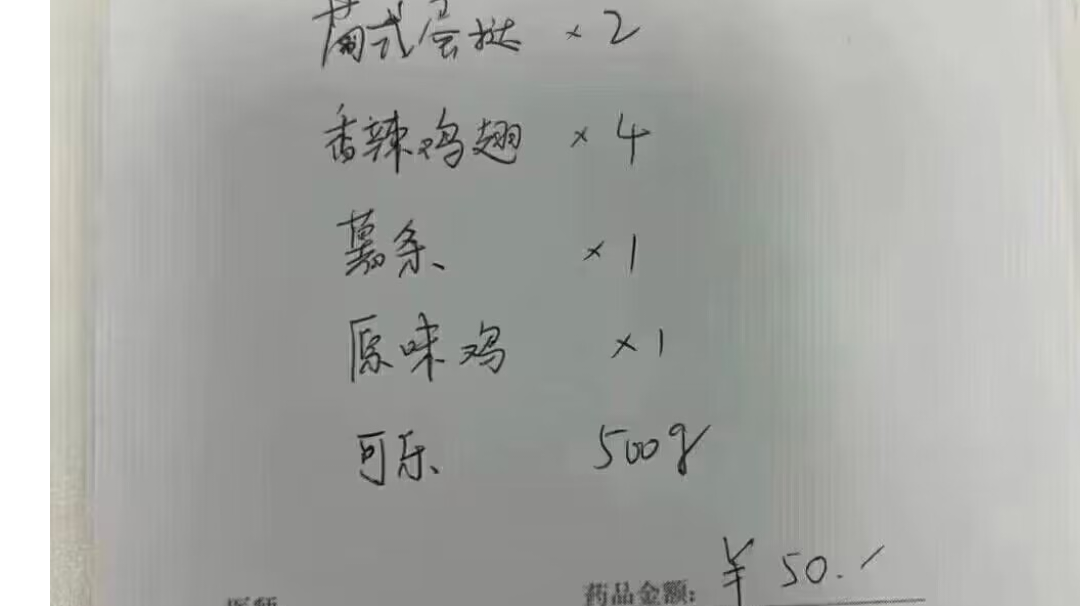 葡式蛋挞 ×2
香辣鸡翅 ×4
薯条 ×1
原味鸡 ×1
可乐 500g
药品金额: ¥50.
医师